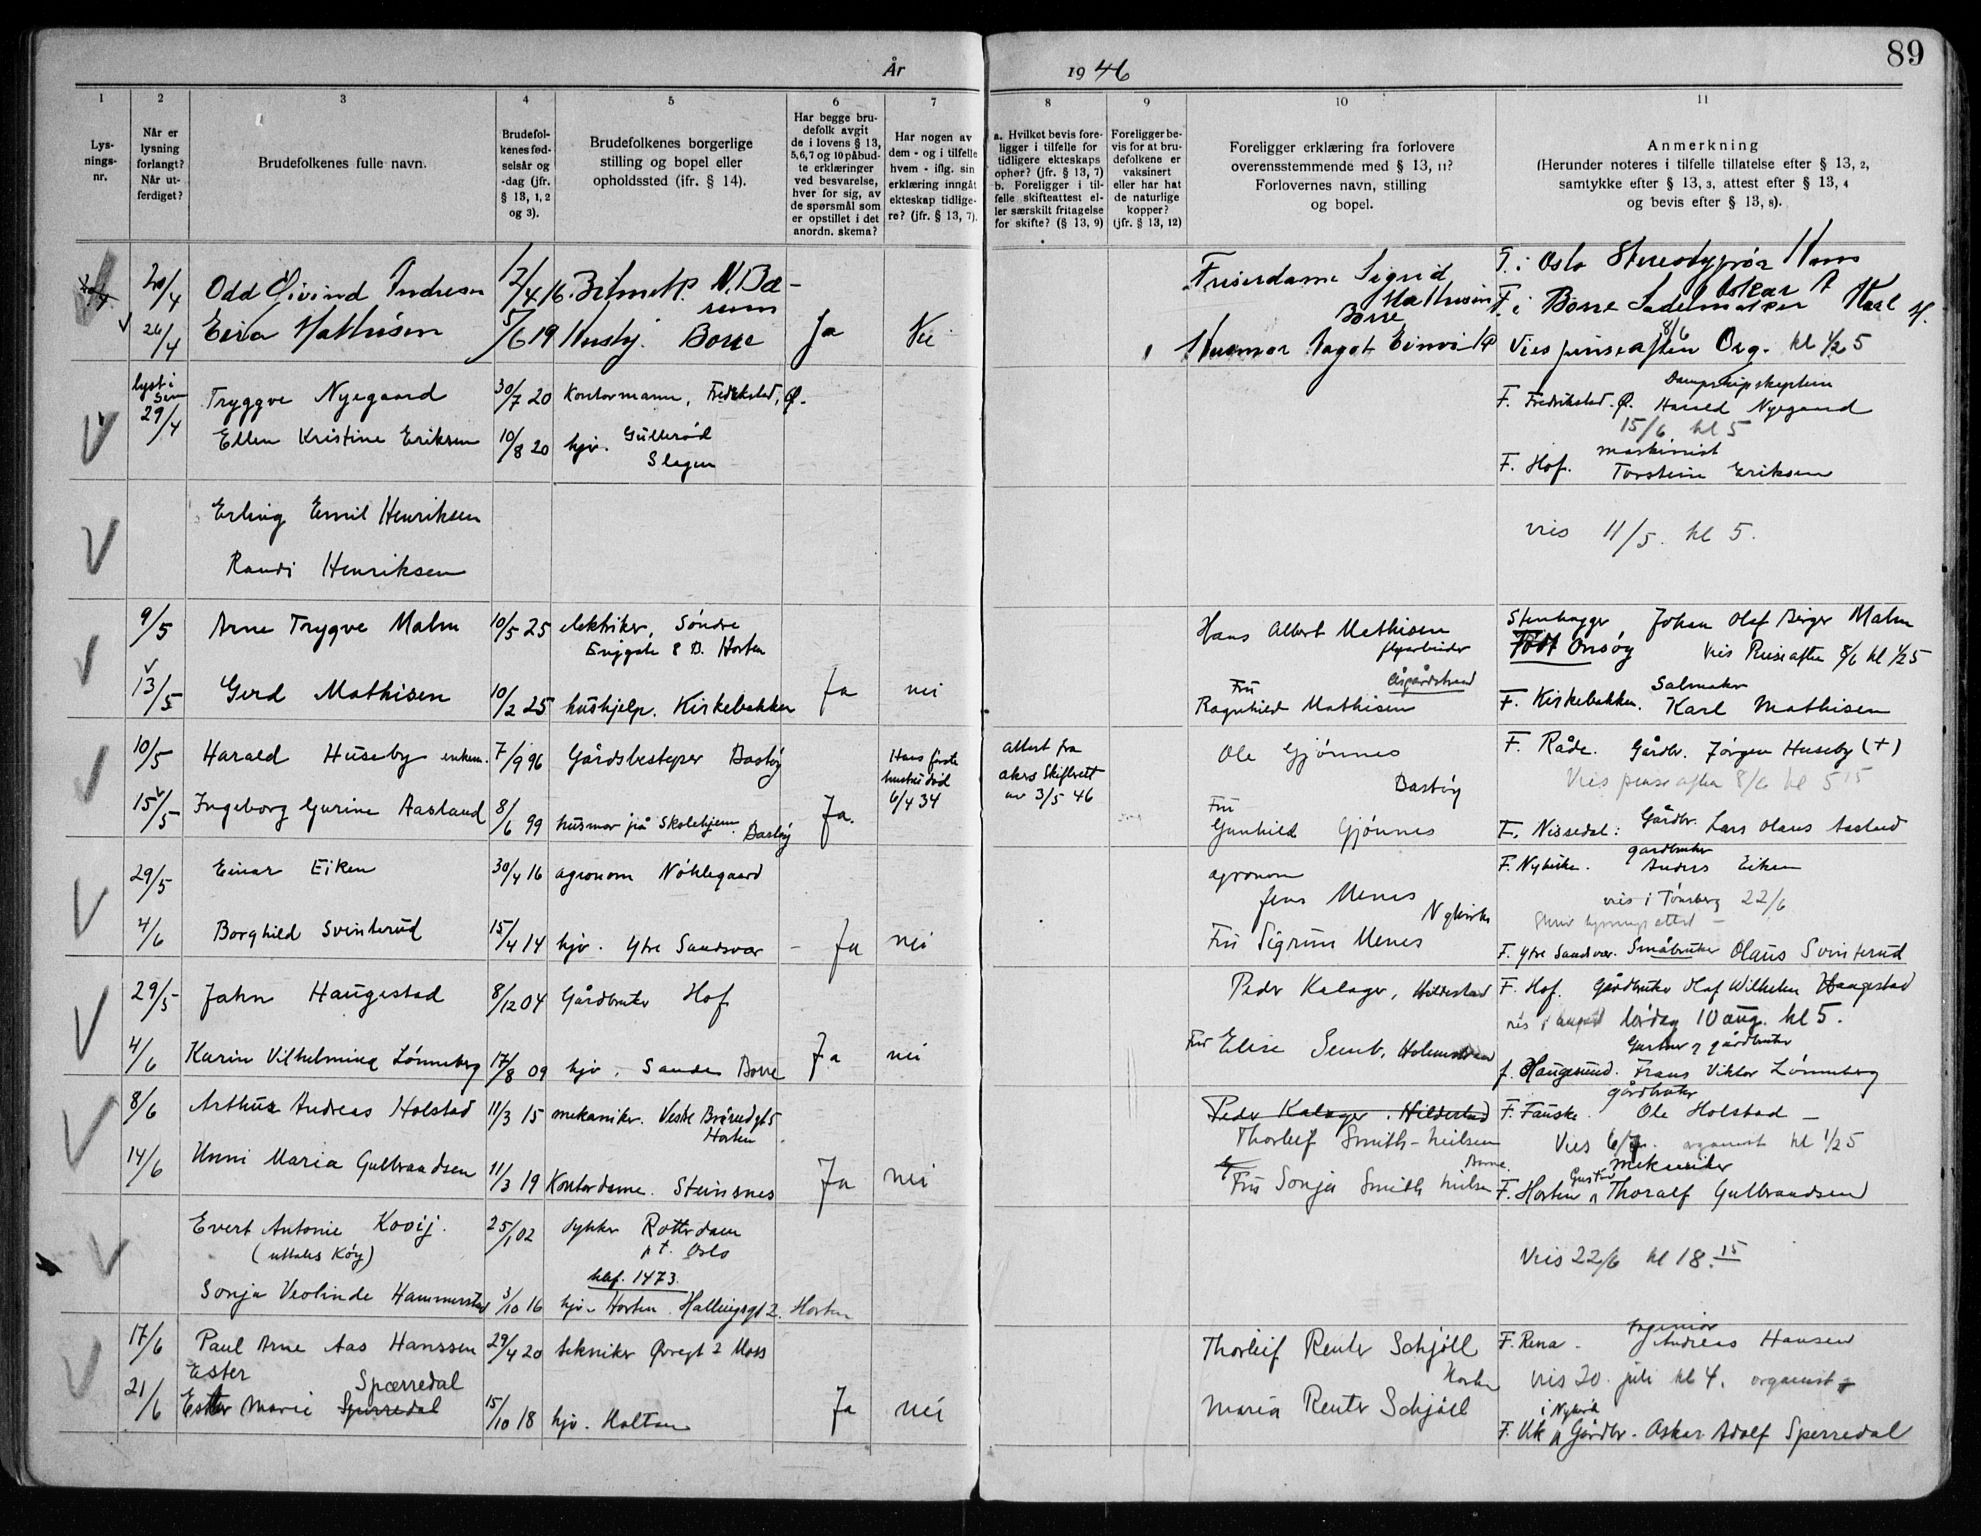 89
År 1946
1 2 3 4 5 6 7 8 9 10 11
Lys-
nings-
nr.
Når er
lysning
forlangt?
Når ut-
ferdiget?
Brudefolkenes fulle navn.
Brudefol-
kenes fød-
selsår og
-dag (jfr.
§ 13, 1, 2
og 3).
Brudefolkenes borgerlige
stilling og bopel eller
opholdssted (jfr. § 14).
Har begge bru-
defolk avgit
de i lovens § 13,
5, 6, 7 og 10 påbud-
te erklæringer
ved besvarelse,
hver for sig, av
de spørsmål som
er opstillet i det
anordn. skema?
Har nogen av
dem - og i tilfelle
hvem - iflg. sin
erklæring inngått
ekteskap tidlige-
re? (jfr. § 13, 7).
a. Hvilket bevis fore-
ligger i tilfelle for
tidligere ekteskaps
ophør? (jfr. § 13, 7)
b. Foreligger i til-
felle skifteattest el-
ler særskilt fritagelse
for skifte? (§ 13, 9)
Foreligger be-
vis for at bru-
defolkene er
vaksinert
eller har hat
de naturlige
kopper?
(jfr. § 13, 12)
Foreligger erklæring fra forlovere
overensstemmende med § 13, 11?
Forlovernes navn, stilling
og bopel.
Anmerkning
(Herunder noteres i tilfelle tillatelse efter § 13, 2,
samtykke efter § 13, 3, attest efter § 13, 4
og bevis efter § 13, 8).
20/4 Odd Øivind Andresen 12/4 16 N. Bæ-
rum
Friserdame Sigrid
Mathisen
Borre
F. i Oslo Stereotypør Hans
Oskar A
26/4 Eva Mathisen 5/6 19 Husbj. Borre Ja Nei
F. i Borre Sadelmaker Karl M.
Vies pinseaften 8/6 Org. kl 1/2 5
lyst i
Sem
29/4 Tryggve Nyegaard 30/7 20 Kontormann, Fredrikstad, Ø.
F. Fredrikstad. Ø. Dampskipskaptein
Harald Nyegaard
15/6 kl 5
Ellen Kristine Eriksen 10/8 20 hjv. Gullerød
Slagen
F. Hof. maskinist
Torstein Eriksen
Erling Emil Henriksen
Randi Henriksen
vies 11/5. kl 5.
9/5 Arne Trygve Malm 10/5 25 elektriker, Søndre
Enggate 8 B. Horten
Hans Albert Mathisen
Åsgårdstrand
Stenhugger Johan Olaf Birger Malm
Født Onsøy Vies Pinseaften 8/6 kl 1/2 5
13/5 Gerd Mathisen 10/2 25 hushjelp. Kirkebakken Ja nei
Fru
Ragnhild Mathisen
F. Kirkebakken. Salmaker
Karl Mathisen
10/5 Harald Huseby enkem. 7/9 96 Gårdsbestyrer Bastøy
Hans første
hustru død
6/4 34
attest fra
akers Skifterett
av 3/5 46
Ole Gjønnes
Bastøy
F. Råde. Gårdbr. Jørgen Huseby (+)
Vies pinseaften 8/6 kl 5 15
15/5 Ingeborg Gurine Aasland 8/6 99 husmor på Skolehjem. Bastøy Ja.
Fru
Gunhild Gjønnes
F. Nissedal: Gårdbr. Lars Olaus Aasland
29/5 Einar Eiken 30/4 16 agronom Nøklegaard
agronom
Jens Menes
Nykirke
F. Nykirke. gardbruker
Anders Eiken
vies i Tønsberg 22/6
4/6 Borghild Svinterud 15/4 14 hjv. Ytre Sandsvær - Ja nei
Fru Sigrun Menes
F. Ytre Sandsvær. Småbruker Olaus Svinterud
29/5 Jahn Haugestad 8/12 04 Gårdbruker Hof
Peder Kalager, Hildestad
F. Hof. Gårdbruker Olaf Wilhelm Haugestad
vies i august lørdag 10 aug. kl 5.
4/6 Karin Vilhelmine Lønneberg 17/8 09 hjv. Sande Borre Ja nei
Fru Elise Semb, Holmestrand
Gartner og gårdbruker
f. Haugesund. Frans Viktor Lønneberg
8/6 Arthur Andreas Holstad 11/3 15 mekaniker. Vestre Brårudgt 5
Horten
Peder Kalager. Hildestad
Thorleif Smith-Nielsen
Borre.
F. Fauske. gårdbruker
Ole Holstad -
Vies 6/7. organist kl 1/2 5
14/6 Unni Maria Gulbrandsen 11/3 19 Kontordame. Steinsnes Ja nei
Fru Sonja Smith Nielsen
mekaniker
F. Horten Gustav Thoralf Gulbrandsen
Evert Antonie Kooij.
(uttales Köy)
25/1 02 dykker Rotterdam
p.t. Oslo
tlf. 1473.
Vies 22/6 kl 18.15
Sonja Veolinde Hammerstad 3/10 16 hjv. Horten. Hallingsgt 2. Horten
17/6 Paul Arne Aas Hanssen 29/4 20 tekniker Øvregt 2 Moss
Thorleif Reuter Schjöll
Horten
F. Rena. Ingeniør
Andreas Hansen
vies 20. juli kl 4. organist
21/6 Ester Spærredal
Ester Marie Sperredal 15/10 18 hjv. Holtan Ja nei
Maria Reuter Schjöll
i Nykirk
F. Vik Gårdbr. Oskar Adolf Sperredal